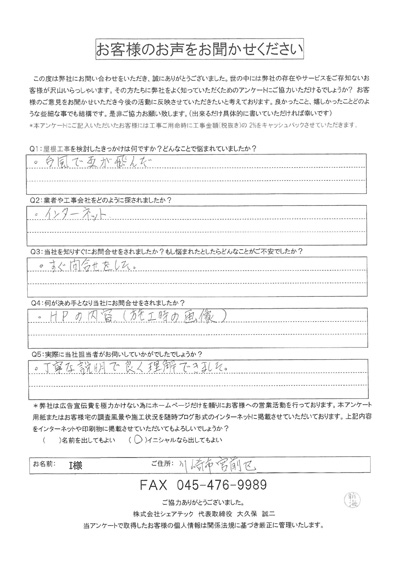 お客様のお声をお聞かせください
この度は弊社にお問い合わせをいただき、誠にありがとうございました。世の中には弊社の存在やサービスをご存知ないお
客様が沢山いらっしゃいます。その方たちに弊社をよく知っていただくためのアンケートにご協力いただけるでしょうか？ お客
様のご意見をお聞かせいただき今後の活動に反映させていただきたいと考えております。良かったこと、嬉しかったことどのよ
うな些細な事でも結構です。是非ご協力お願い致します。（出来るだけ具体的に書いていただければ幸いです）
*本アンケートにご記入いただいたお客様には工事ご用命時に工事金額(税抜き)の 2%をキャッシュバックさせていただきます.
Q1：屋根工事を検討したきっかけは何ですか？どんなことで悩まれていましたか？
・台風で瓦が飛んだ
Q2：業者や工事会社をどのように探されましたか？
・インターネット
Q3：当社を知りすぐにお問合せをされましたか？もし悩まれたとしたらどんなことがご不安でしたか？
・すぐ問合せをした。
Q4：何が決め手となり当社にお問合せをされましたか？
・HPの内容（施工時の画像）
Q5：実際に当社担当者がお伺いしていかがでしたでしょうか？
・丁寧な説明で良く理解できました。
＊弊社は広告宣伝費を極力かけない為にホームページだけを頼りにお客様への営業活動を行っております。本アンケート
用紙またはお客様宅の調査風景や施工状況を随時ブログ形式のインターネットに掲載させていただいております。上記内容
をインターネットや印刷物に掲載させていただいてもよろしいでしょうか？
（　）名前を出してもよい　（○）イニシャルなら出してもよい
お名前： I様 ご住所： 川崎市宮前区
FAX 045-476-9989
ご協力ありがとうございました。
株式会社シェアテック 代表取締役 大久保 誠二
当アンケートで取得したお客様の個人情報は関係法規に基づき厳正に管理いたします。